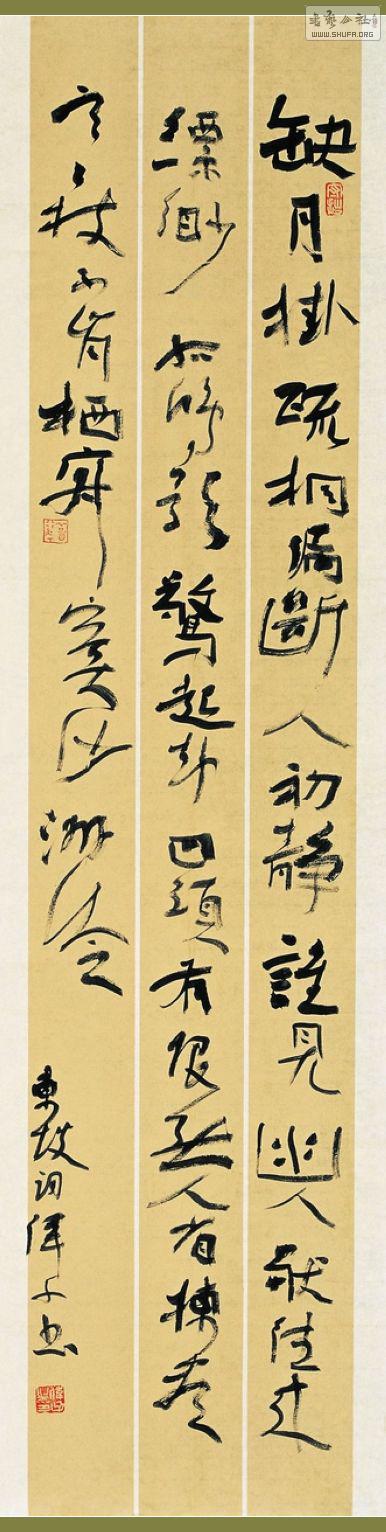 書藝公社
WWW.SHUFA.ORG
缺月掛疏桐漏斷人初靜誰見幽人獨往来
縹緲孤鴻影驚起却回頭有恨無人省揀盡
寒枝不肯栖寂寞沙洲冷
東坡詞 书